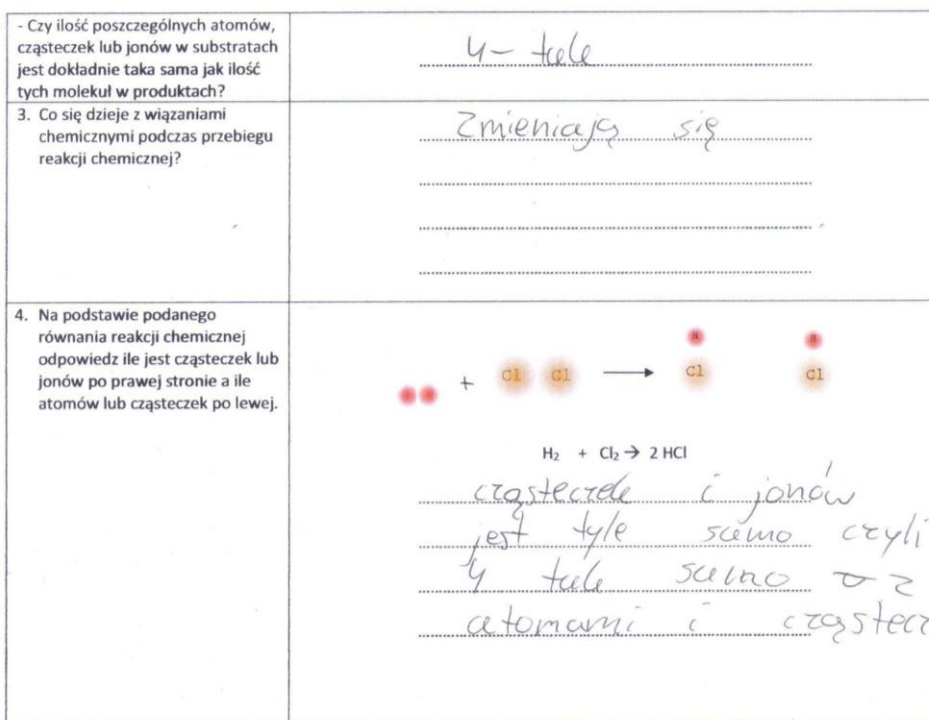 - Czy ilość poszczególnych atomów,
cząsteczek lub jonów w substratach
jest dokładnie taka sama jak ilość
tych molekuł w produktach?
4 - tak
3. Co się dzieje z wiązaniami
chemicznymi podczas przebiegu
reakcji chemicznej?
Zmieniają się
4. Na podstawie podanego
równania reakcji chemicznej
odpowiedz ile jest cząsteczek lub
jonów po prawej stronie a ile
atomów lub cząsteczek po lewej.
H H
+ Cl Cl → Cl Cl
H₂ + Cl₂ → 2 HCl
cząsteczek i jonów
jest tyle samo czyli
4 tak samo z
atomami i cząstecz